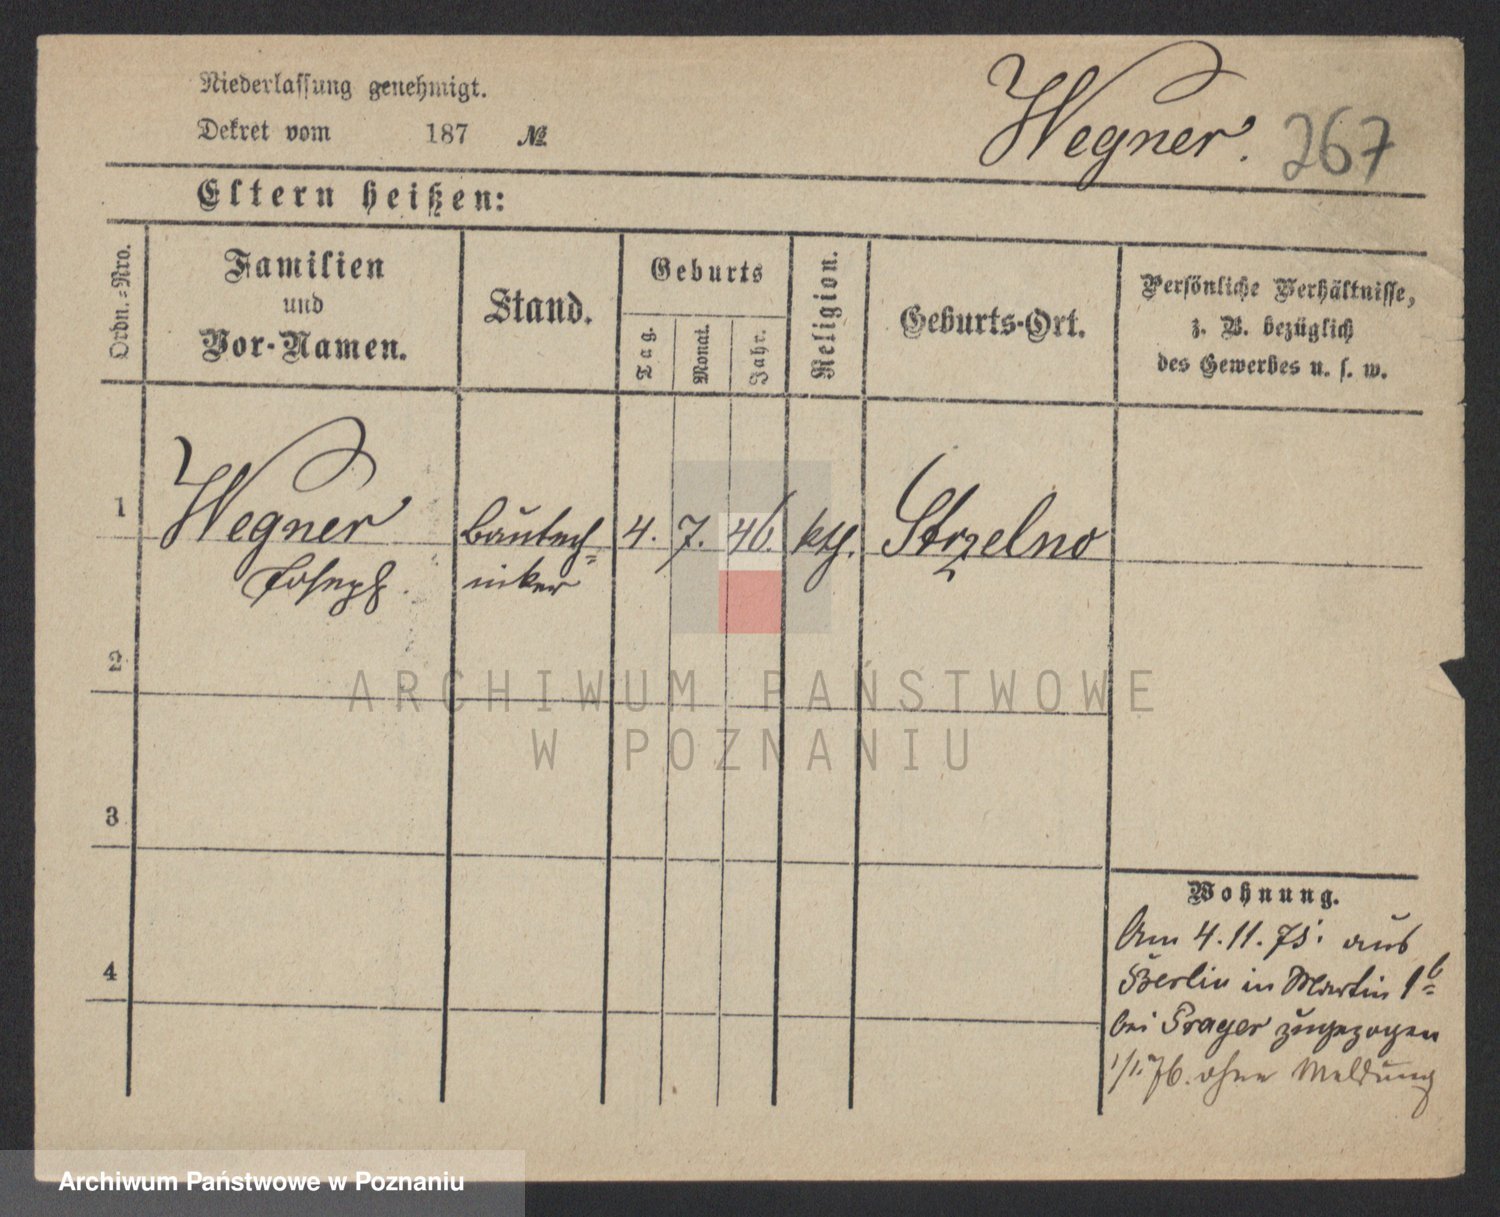 Niederlassung genehmigt.
Dekret vom 187 №
Wegner. 267
Eltern heißen:
Ordn.=Nro.
Familien
und
Vor-Namen.
Stand.
Geburts
Tag.
Monat.
Jahr.
Religion.
Geburts-Ort.
Persönliche Verhältnisse,
z. B. bezüglich
des Gewerbes u. s. w.
1 Wegner Bautech= 4. 7. 46. kth. Strzelno
Joseph. niker
2
3
4
Wohnung.
Am 4.11.75. aus
Berlin in Martin 1b
bei Prager zugezogen
1/1.76. ohne Meldung
ARCHIWUM PAŃSTWOWE
W POZNANIU
Archiwum Państwowe w Poznaniu